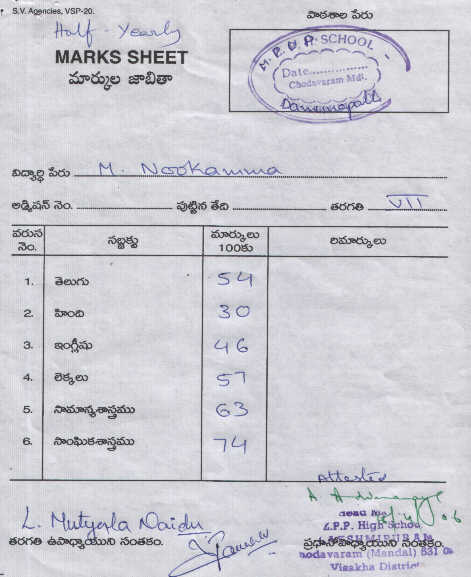 S.V. Agencies, VSP-20.
Half - Yearly
MARKS SHEET
మార్కుల జాబితా
పాఠశాల పేరు
M. P. U P. SCHOOL
Date..............
Chodavaram Mdl.
విద్యార్థి పేరు M. Nookamma
అడ్మిషన్ నెం. పుట్టిన తేది తరగతి VII
వరుస నెం. సబ్జక్టు మార్కులు 100కు రిమార్కులు
1. తెలుగు 54
2. హింది 30
3. ఇంగ్లీషు 46
4. లెక్కలు 57
5. సామాన్యశాస్త్రము 63
6. సాంఘికశాస్త్రము 74
Attested
L. Mutyala Naidu
Z.P.P. High School
తరగతి ఉపాధ్యాయుని సంతకం. ప్రధానోపాధ్యాయుని సంతకం.
hodavaram (Mandal) 531 0
Visakha District